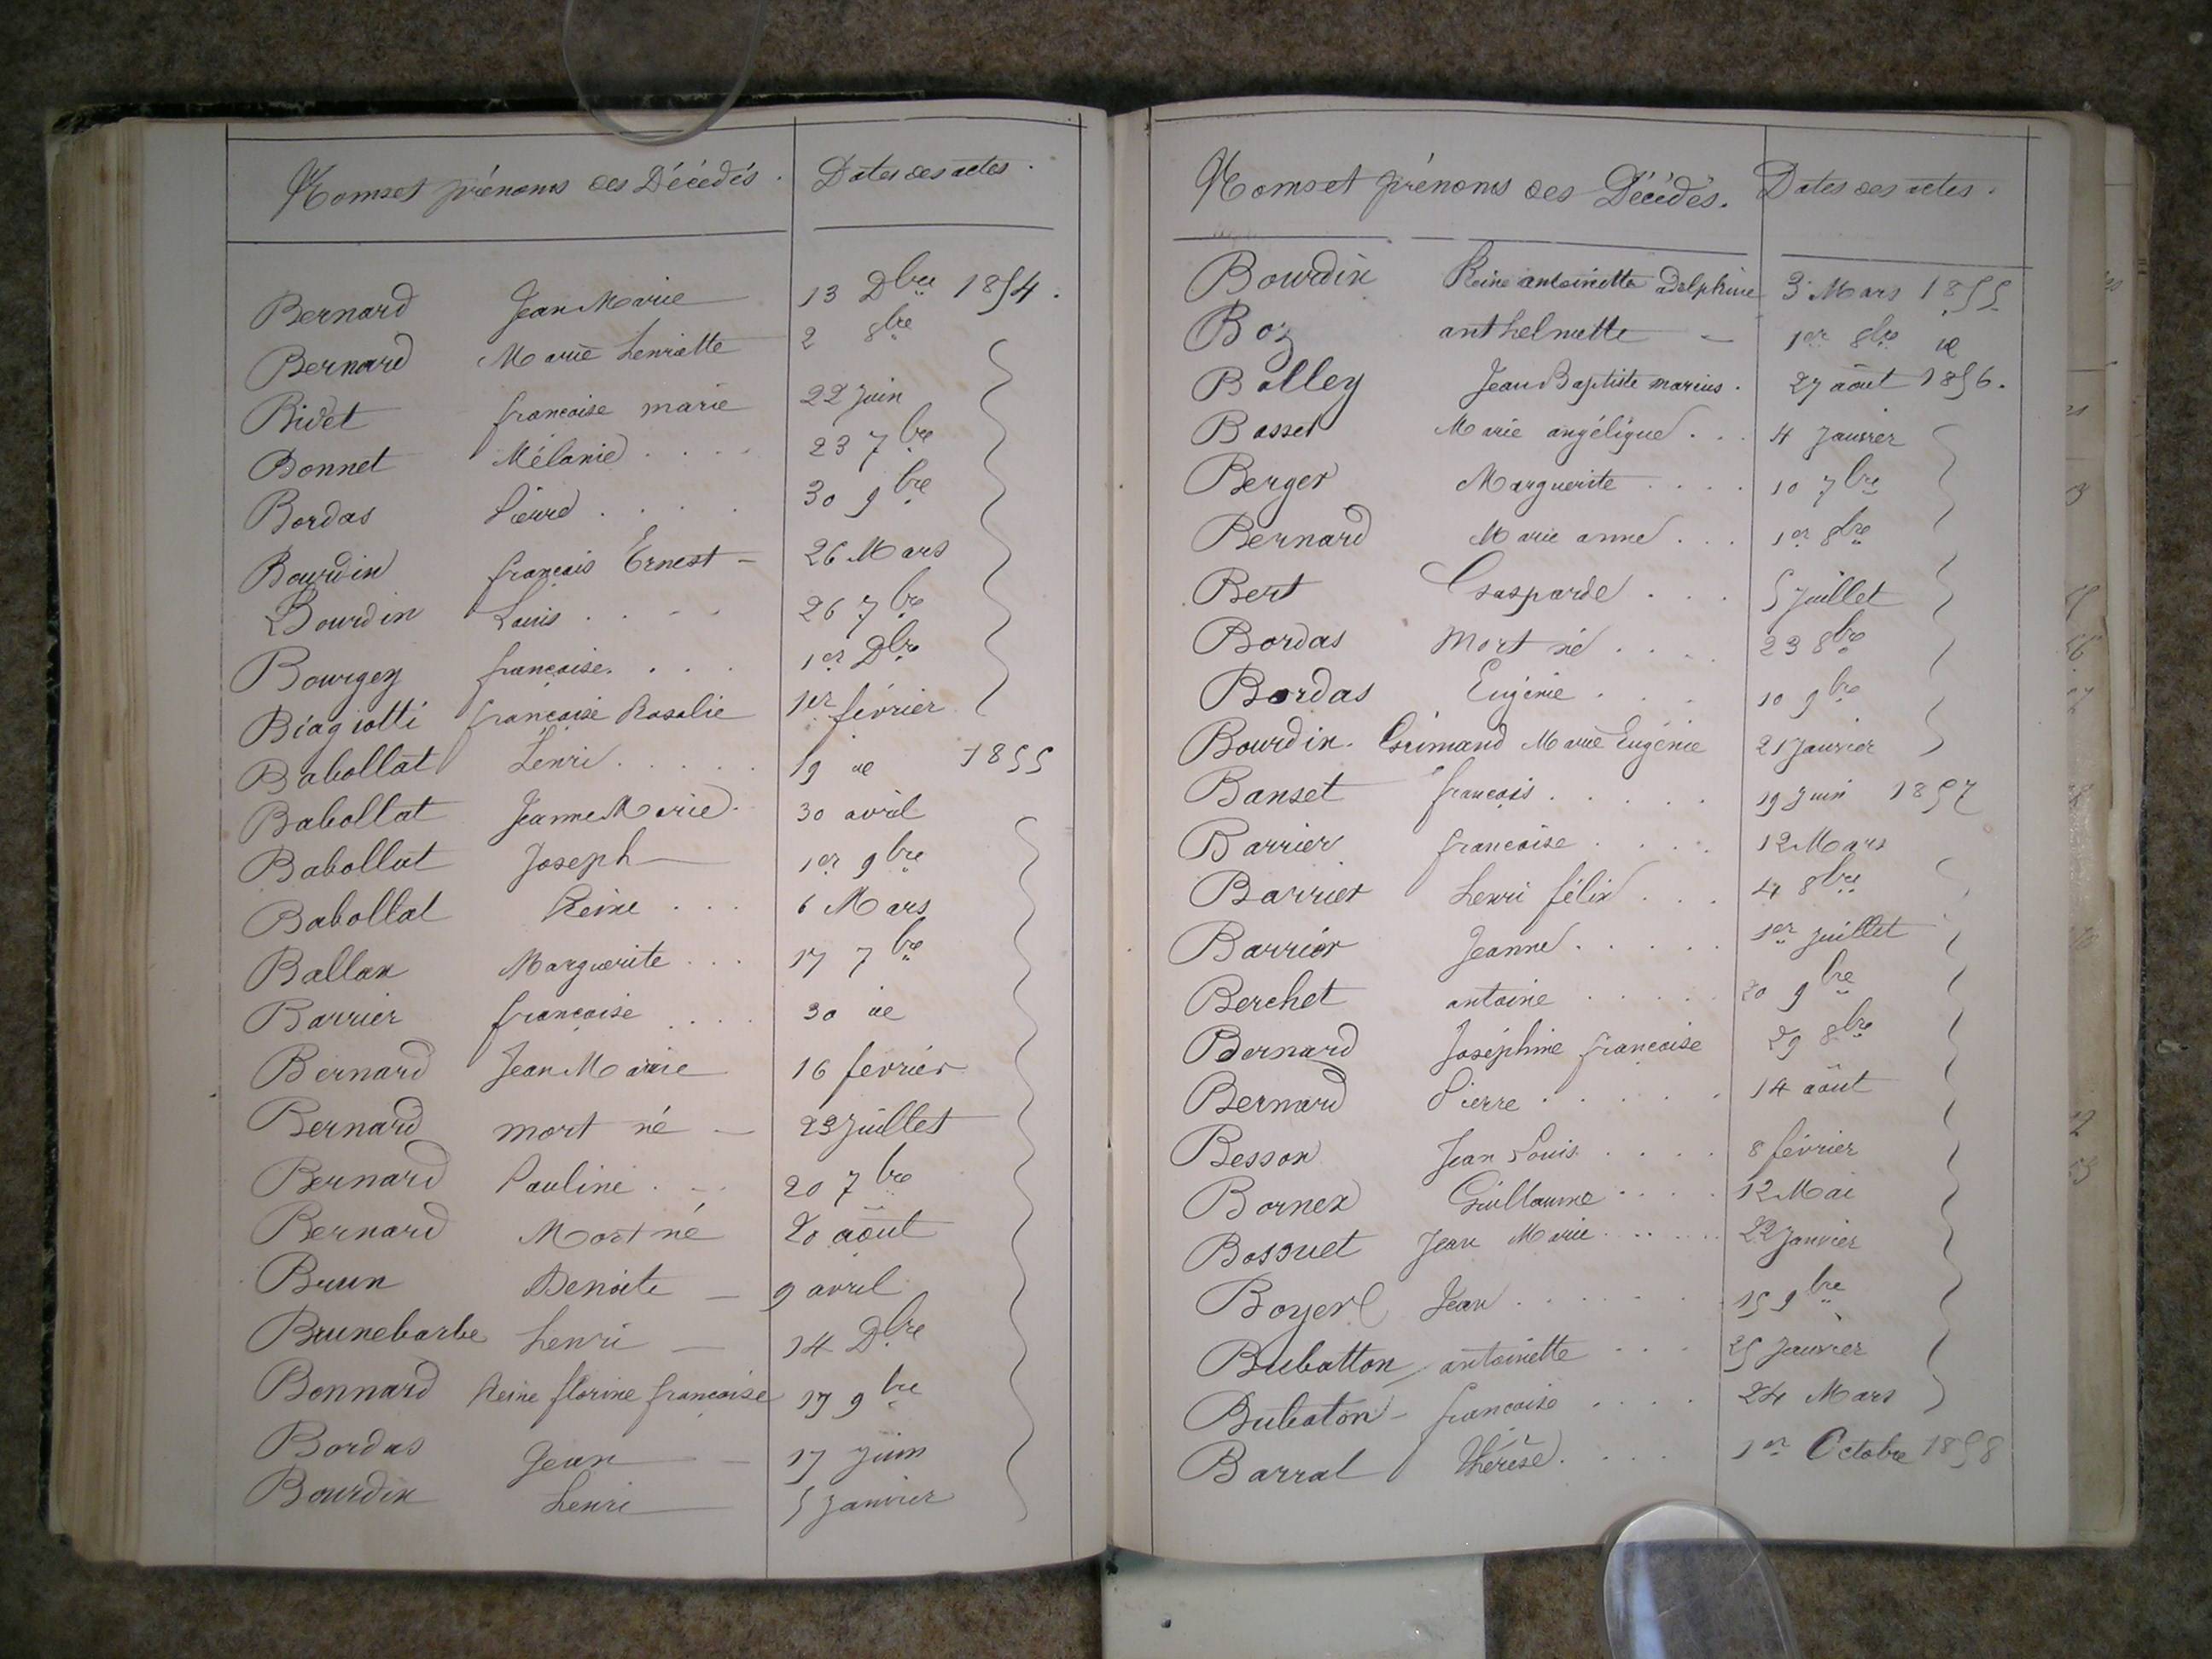 Noms et prénoms des Décédés. Dates des actes.
Bernard Jean Marie 13 Dbre 1854.
Bernard Marie henriette 2 8bre
Bidet françoise marie 22 Juin
Bonnet Mélanie .... 23 7bre
Bordas Pierre .... 30 9bre
Bourdin français Ernest - 26 Mars
Bourdin Louis .... 26 7bre
Bourgey françoise. ... 1er Dbre
Biagiotti françoise Rosalie 1er février
Babollat henri ..... 19 id 1855
Babollat Jeanne Marie. 30 avril
Babollat Joseph — 1er 9bre
Babollat Reine ... 6 Mars
Ballan Marguerite ... 17 7bre
Barrier françoise .... 30 id
Bernard Jean Marie 16 février
Bernard mort né — 23 Juillet
Bernard Pauline ... 20 7bre
Bernard Mort né 20 août
Brun Benoite — 9 avril
Brunebarbe henri — 14 Dbre
Bonnard Reine florine françoise 17 9bre
Bordas Jean — 17 Juin
Bourdin henri — 5 Janvier
Noms et prénoms des Décédés. Dates des actes.
Bourdin Reine antoinette adelphine 3 Mars 1855
Boz anthelmette — 1er 8bre id
Bolley Jean Baptiste marius. 27 août 1856.
Basset Marie angélique ... 4 Janvier
Berger Marguerite .... 10 7bre
Bernard Marie anne ... 1er 8bre
Bert Gasparde ... 5 Juillet
Bordas Mort né .... 23 8bre
Bordas Eugénie ... 10 9bre
Bourdin. Grimand Marie Eugénie 21 Janvier
Banset français ..... 19 Juin 1857
Barrier françoise .... 12 Mars
Barrier henri félix ... 4 8bre
Barrier Jeanne ..... 1er Juillet
Berchet antoine ..... 20 9bre
Bernard Joséphine françoise 29 8bre
Bernard Pierre ...... 14 août
Besson Jean Louis .... 8 février
Bornex Guillaume .... 12 Mai
Bossuet Jean Marie ..... 22 Janvier
Boyer Jean ...... 15 9bre
Bubatton antoinette ... 25 Janvier
Bubaton - françoise .... 24 Mars
Barral thérèse .... 1er Octobre 1858